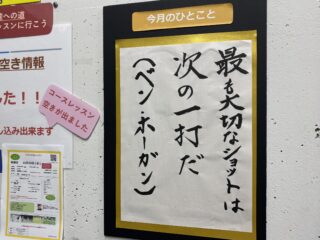 今月のひとこと
最も大切なショットは
次の一打だ
(ベン・ホーガン)
への道
スンに行こう
空き情報
た!!
コースレッスン
空きが出ました
し込み出来ます